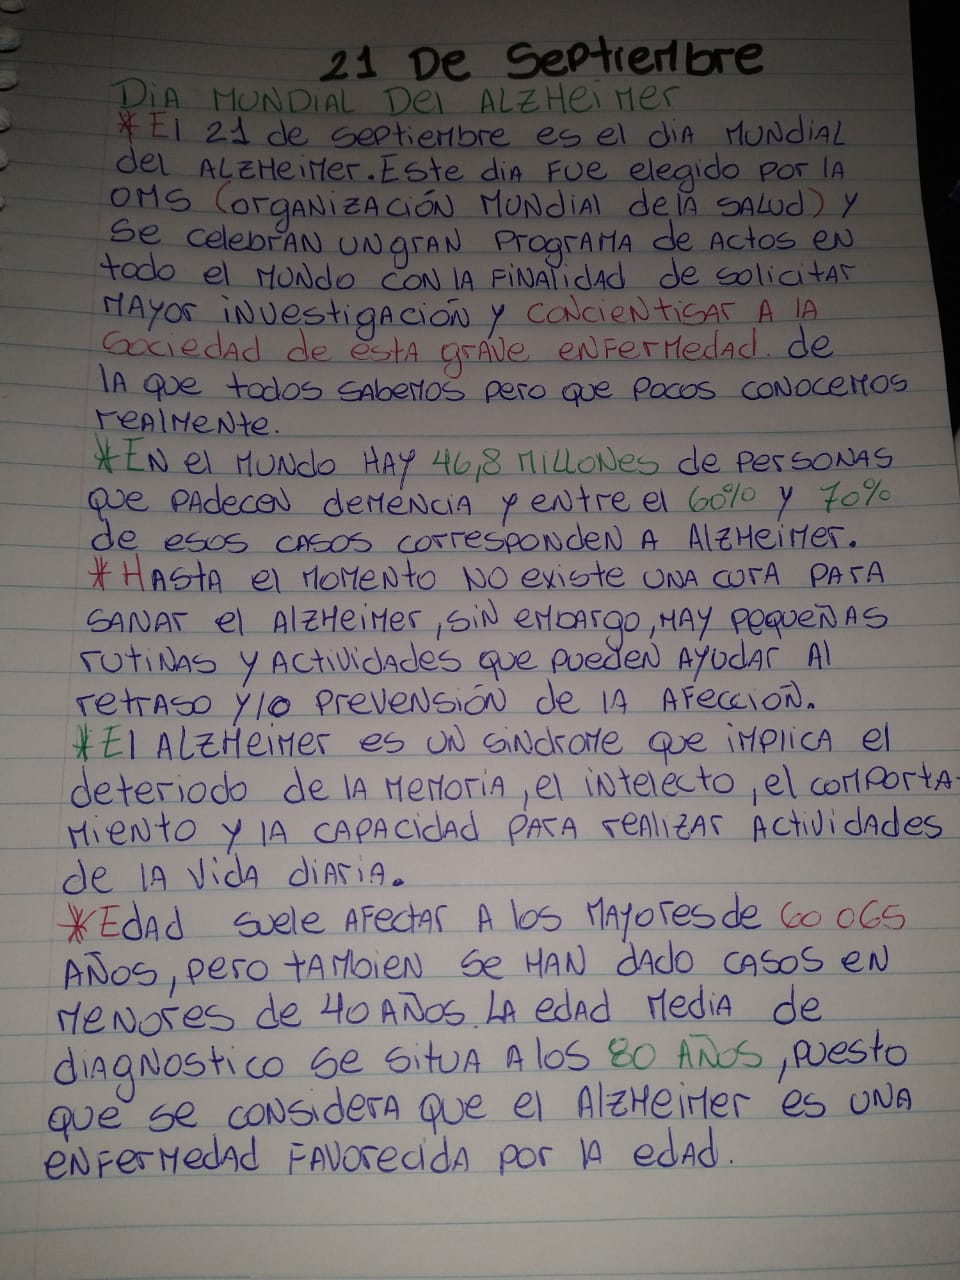 21 De Septiembre
Dia Mundial Del Alzheimer
*El 21 de septiembre es el dia Mundial
del Alzheimer. Este dia fue elegido por la
OMS (organización Mundial de la salud) y
se celebran un gran programa de actos en
todo el mundo con la finalidad de solicitar
mayor investigación y concientisar a la
sociedad de esta grave enfermedad. de
la que todos sabemos pero que pocos conocemos
realmente.
*En el mundo hay 46,8 millones de personas
que padecen demencia y entre el 60% y 70%
de esos casos corresponden a Alzheimer.
*Hasta el momento no existe una cura para
sanar el Alzheimer, sin embargo, hay pequeñas
rutinas y actividades que pueden ayudar al
retraso y/o prevensión de la afección.
*El Alzheimer es un sindrome que implica el
deteriodo de la memoria, el intelecto, el comporta-
miento y la capacidad para realizar actividades
de la vida diaria.
*Edad suele afectar a los mayores de 60 o 65
años, pero tambien se han dado casos en
menores de 40 años. La edad media de
diagnostico se situa a los 80 años, puesto
que se considera que el Alzheimer es una
enfermedad favorecida por la edad.